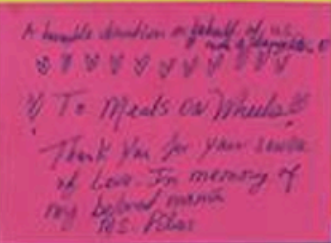 A humble donation on behalf of us,
To Meals on Wheels
Thank You for your service
of Love. In memory of
my beloved mama
Ms.